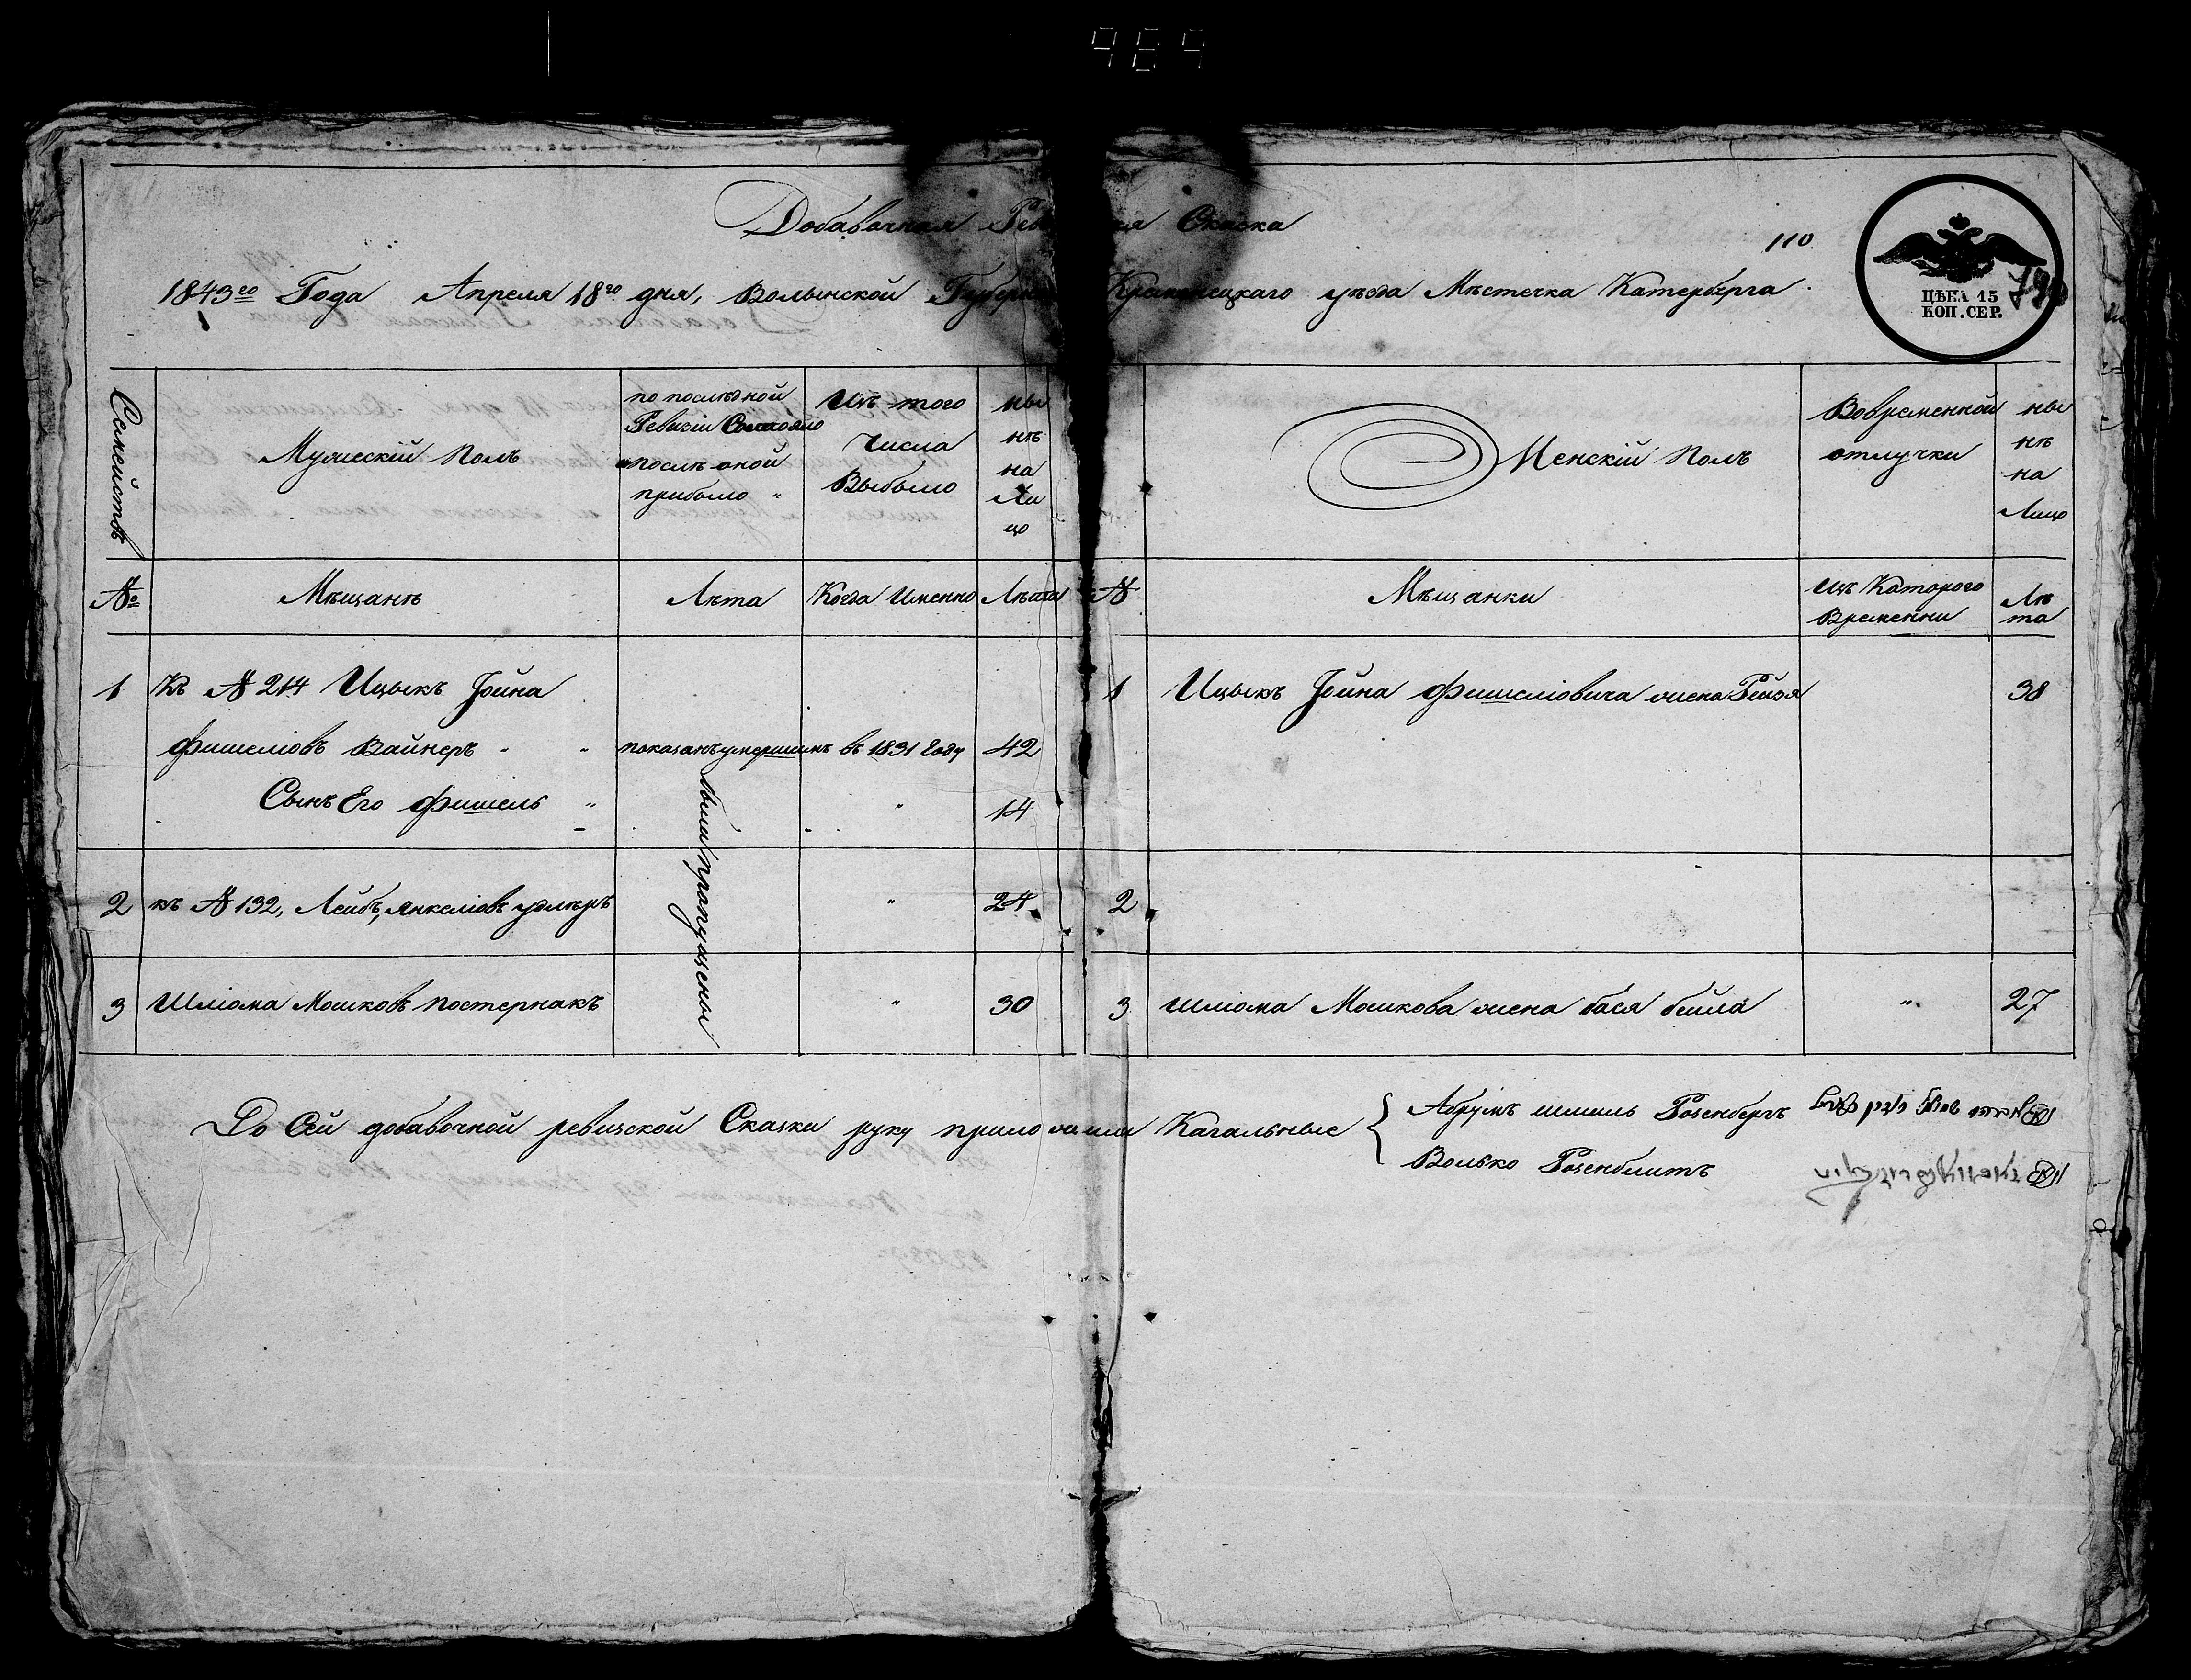 464
Добавочная Рев ая Сказка
110
1843го Года Апреля 18го дня, Волынской Губерн Кременецкаго уезда Местечка Катерберга
ЦѢНА 15
КОП. СЕР.
Семейства
Мужескій Полъ
по последной
Ревизіи Состояло
и после оной
прибыло "
Изъ того
числа
Выбыло
ны
нѣ
на
Ли
цо
Женскій Полъ
Вовременной
отлучки
ны
нѣ
на
Лицо
№
Мѣщанѣ
Лѣта
Когда Именно
Лѣта
№
Мѣщанки
Изъ Каторого
Временни
Лѣ
та
1 Къ № 214 Ицыкъ Іойна
фишеліовъ Вайнеръ " " показанъ умершимъ въ 1831 году 42
Сынъ Его фишель " " 14
1 Ицыкъ Іойна Фишеліовича жена Рейзя 38
были пропущены
2 къ № 132, Лейбъ, Янкеліовъ " 24
2
3 Шліома Мошковъ Постернакъ " 30
3 Шліома Мошкова жена бася бейла " 27
До Сей добавочной ревизской Сказки руку приложили Кагальные
Абрумъ шмиль Розенбергъ
Волько Розенблитъ